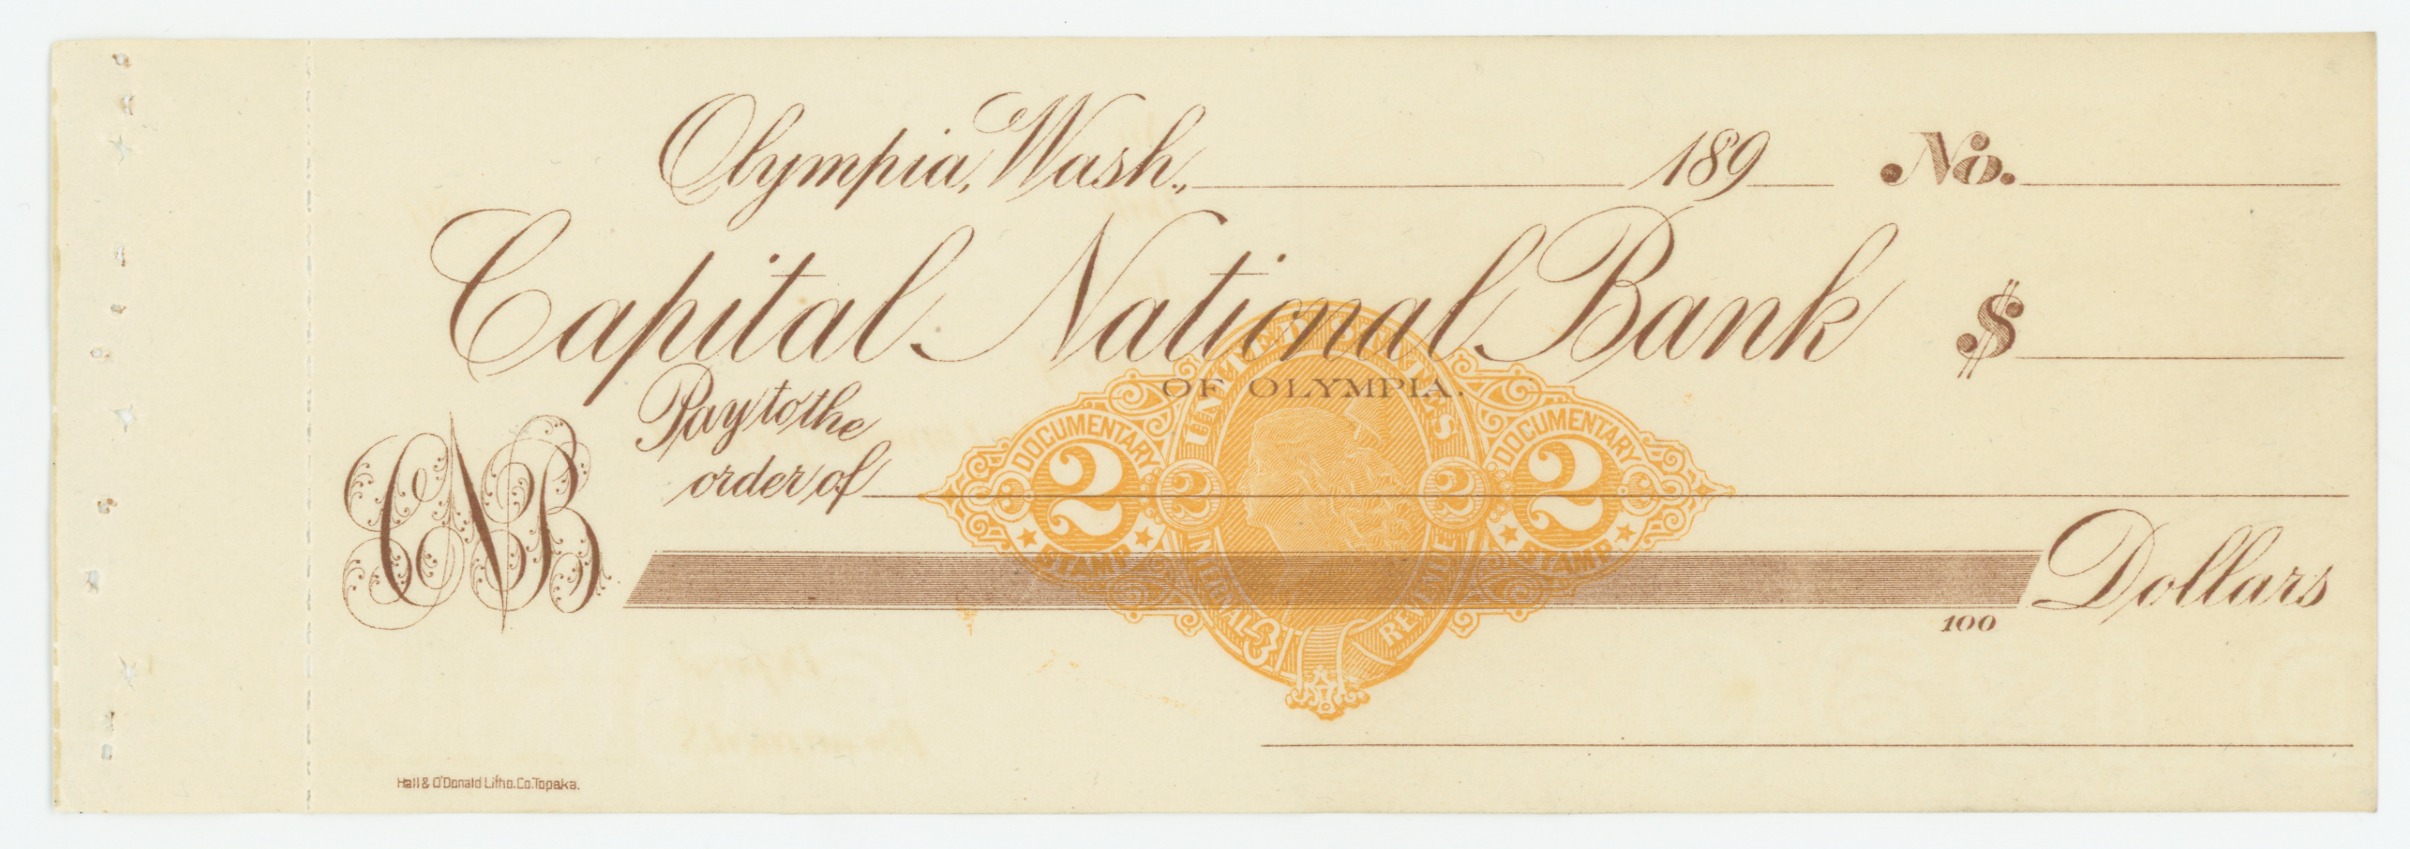 Olympia, Wash., 189 No.
Capital National Bank $
OF OLYMPIA.
Pay to the
order of
CNB
UNITED STATES
DOCUMENTARY DOCUMENTARY
2 2 2 2
STAMP STAMP
INTERNAL REVENUE
Dollars
100
Hall & O'Donald Litho. Co. Topeka.